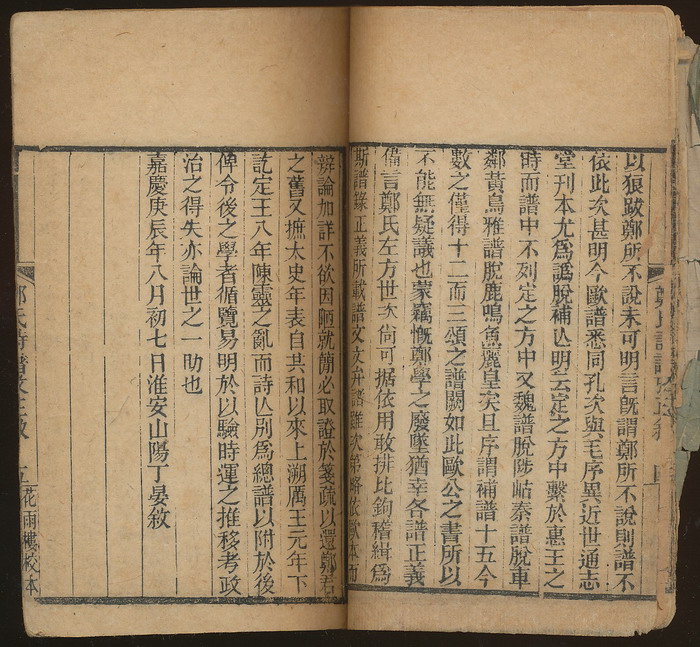 以狼跋鄭所不說未可明言旣謂鄭所不說則譜不
依此次甚明今歐譜悉同孔次與毛序異近世通志
堂刊本尤爲譌脫補亾明云定之方中繫於惠王之
時而譜中不列定之方中又魏譜脫陟岵秦譜脫車
鄰黃鳥雅譜脫鹿鳴魚麗皇矣且序謂補譜十五今
數之僅得十二而三頌之譜闕如此歐公之書所以
不能無疑議也蒙竊慨鄭學之廢墜猶幸各譜正義
備言鄭氏左方世次尙可据依用敢排比鉤稽緝爲
斯譜緣正義所載譜文文幷譜雖次第略依歐本而
辨論加詳不欲因陋就簡必取證於箋疏以還鄭君
之舊又摭太史年表自共和以來上溯厲王元年下
訖定王八年陳靈之亂而詩亾別爲總譜以附於後
俾令後之學者循覽易明於以驗時運之推移考政
治之得失亦論世之一助也
嘉慶庚辰年八月初七日淮安山陽丁晏敘
花雨樓校本